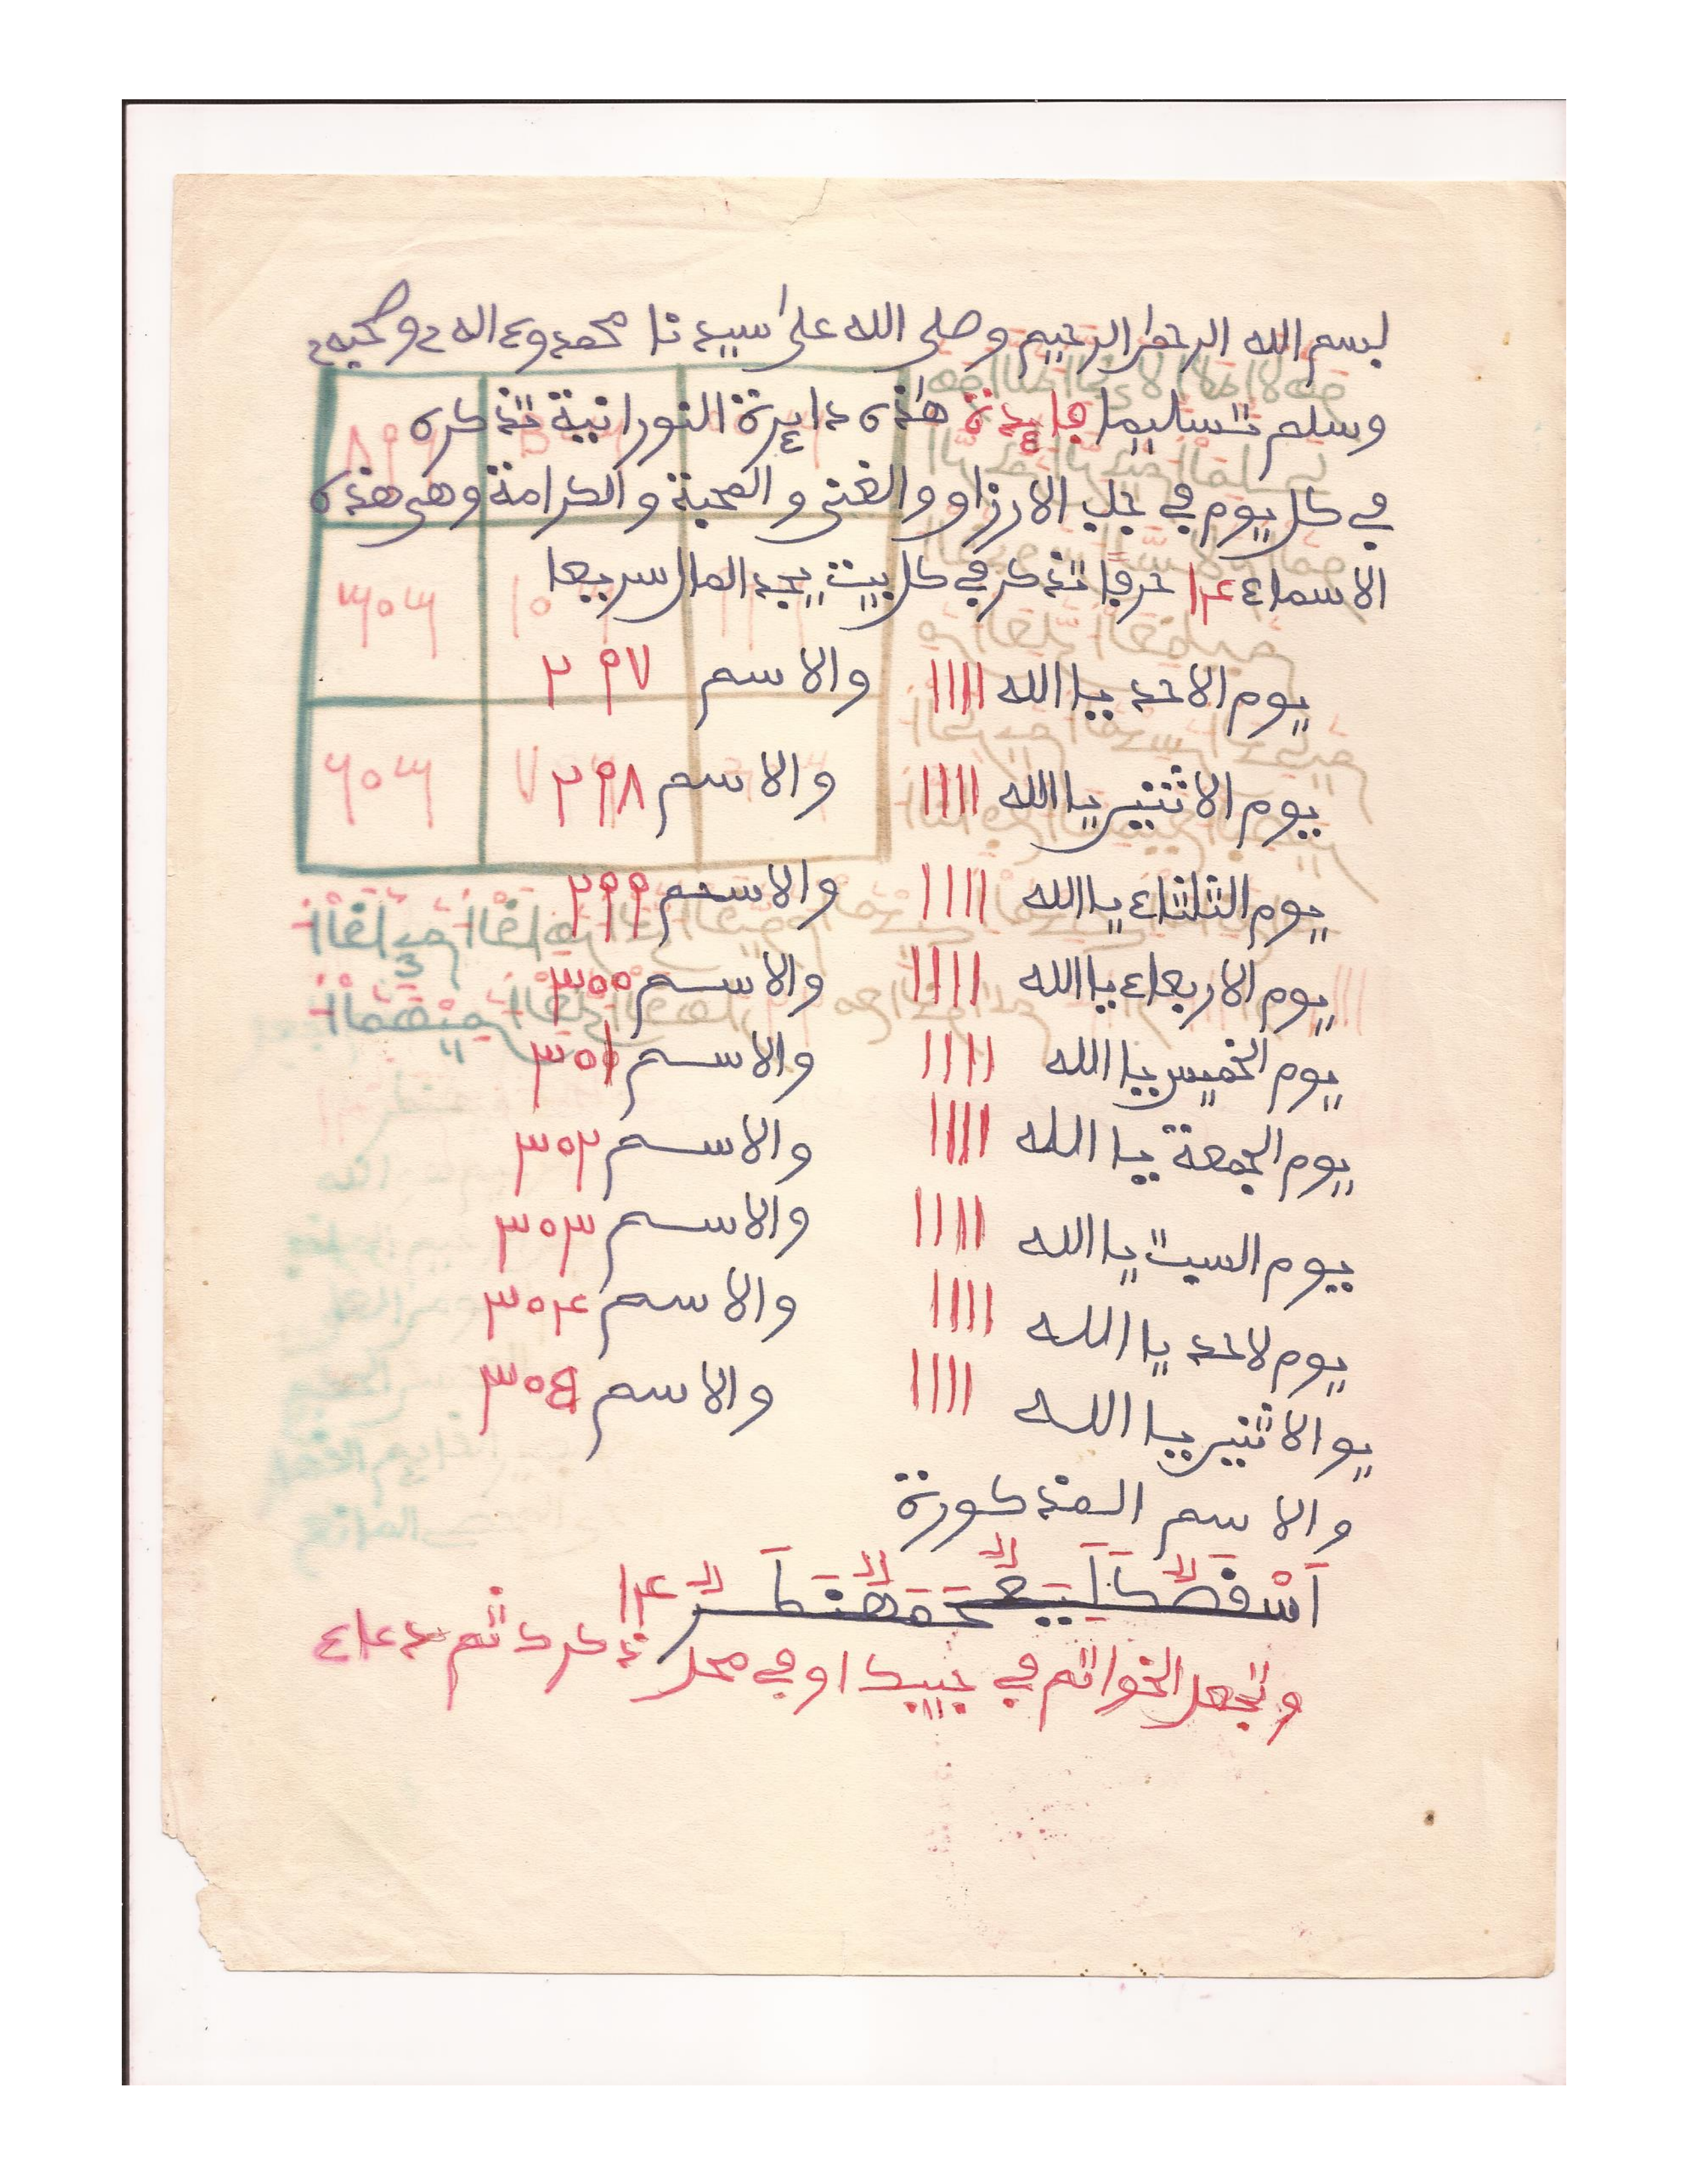 بسم الله الرحمن الرحيم وصلى الله على سيدنا محمد وءاله وصحبه
وسلم تسليما فايدة هذه دايرة النورانية تذكره
في كل يوم في جلب الارزاو والغنى والمحبة والكرامة وهي هذه
الاسماء ١٤ حرفا تذكر في كل بيت يجد المال سريعا
يوم الاحد يا الله ١١١١ والاسم ٢٩٧
يوم الاثنين يا الله ١١١١ والاسم ٢٩٨
يوم الثلثاء يا الله ١١١١ والاسم ٢٩٩
يوم الاربعاء يا الله ١١١١ والاسم ٣٠٠
يوم الخميس يا الله ١١١١ والاسم ٣٠١
يوم الجمعة يا الله ١١١١ والاسم ٣٠٢
يوم السبت يا الله ١١١١ والاسم ٣٠٣
يوم لاحد يا الله ١١١١ والاسم ٣٠٤
يو الاثنين يا الله ١١١١ والاسم ٣٠٥
والاسم المذكورة
١٤
وتجعل الخواتم في جيبك او في محل ذكرك ثم دعاء